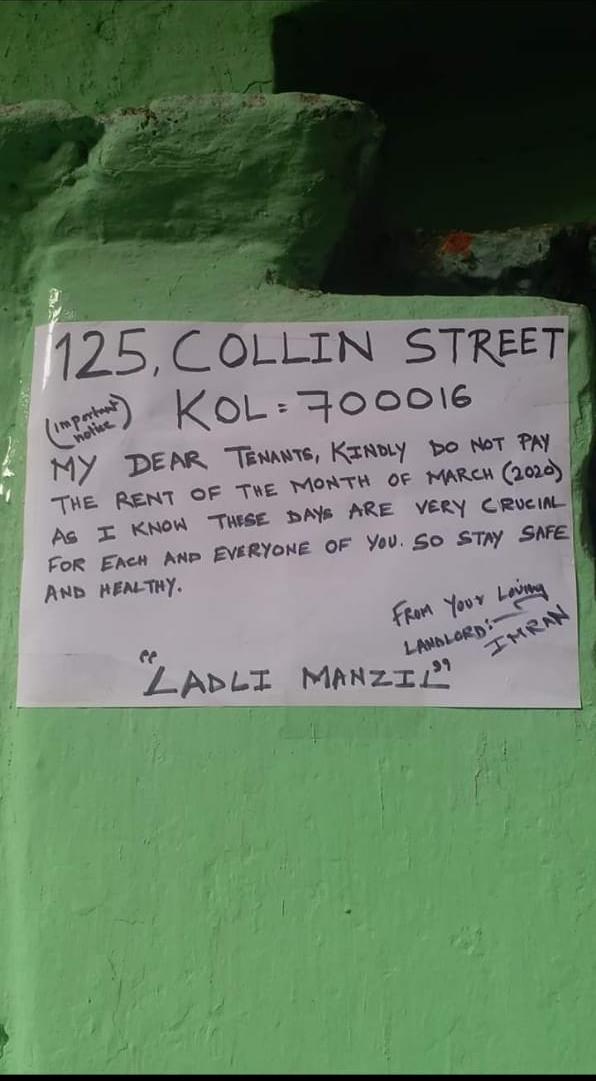 125, COLLIN STREET
(important notice) KOL = 700016
MY DEAR TENANTS, KINDLY DO NOT PAY
THE RENT OF THE MONTH OF MARCH (2020)
AS I KNOW THESE DAYS ARE VERY CRUCIAL
FOR EACH AND EVERYONE OF YOU. SO STAY SAFE
AND HEALTHY.
FROM YOUR Loving
LANDLORD:- IMRAN
"LADLI MANZIL"